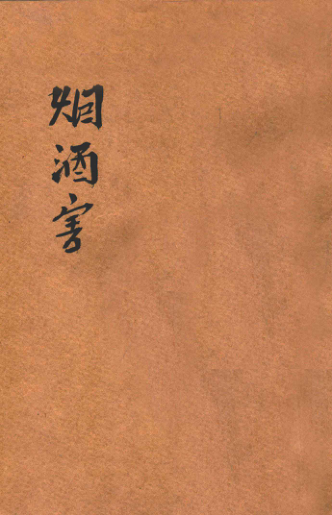 烟酒害